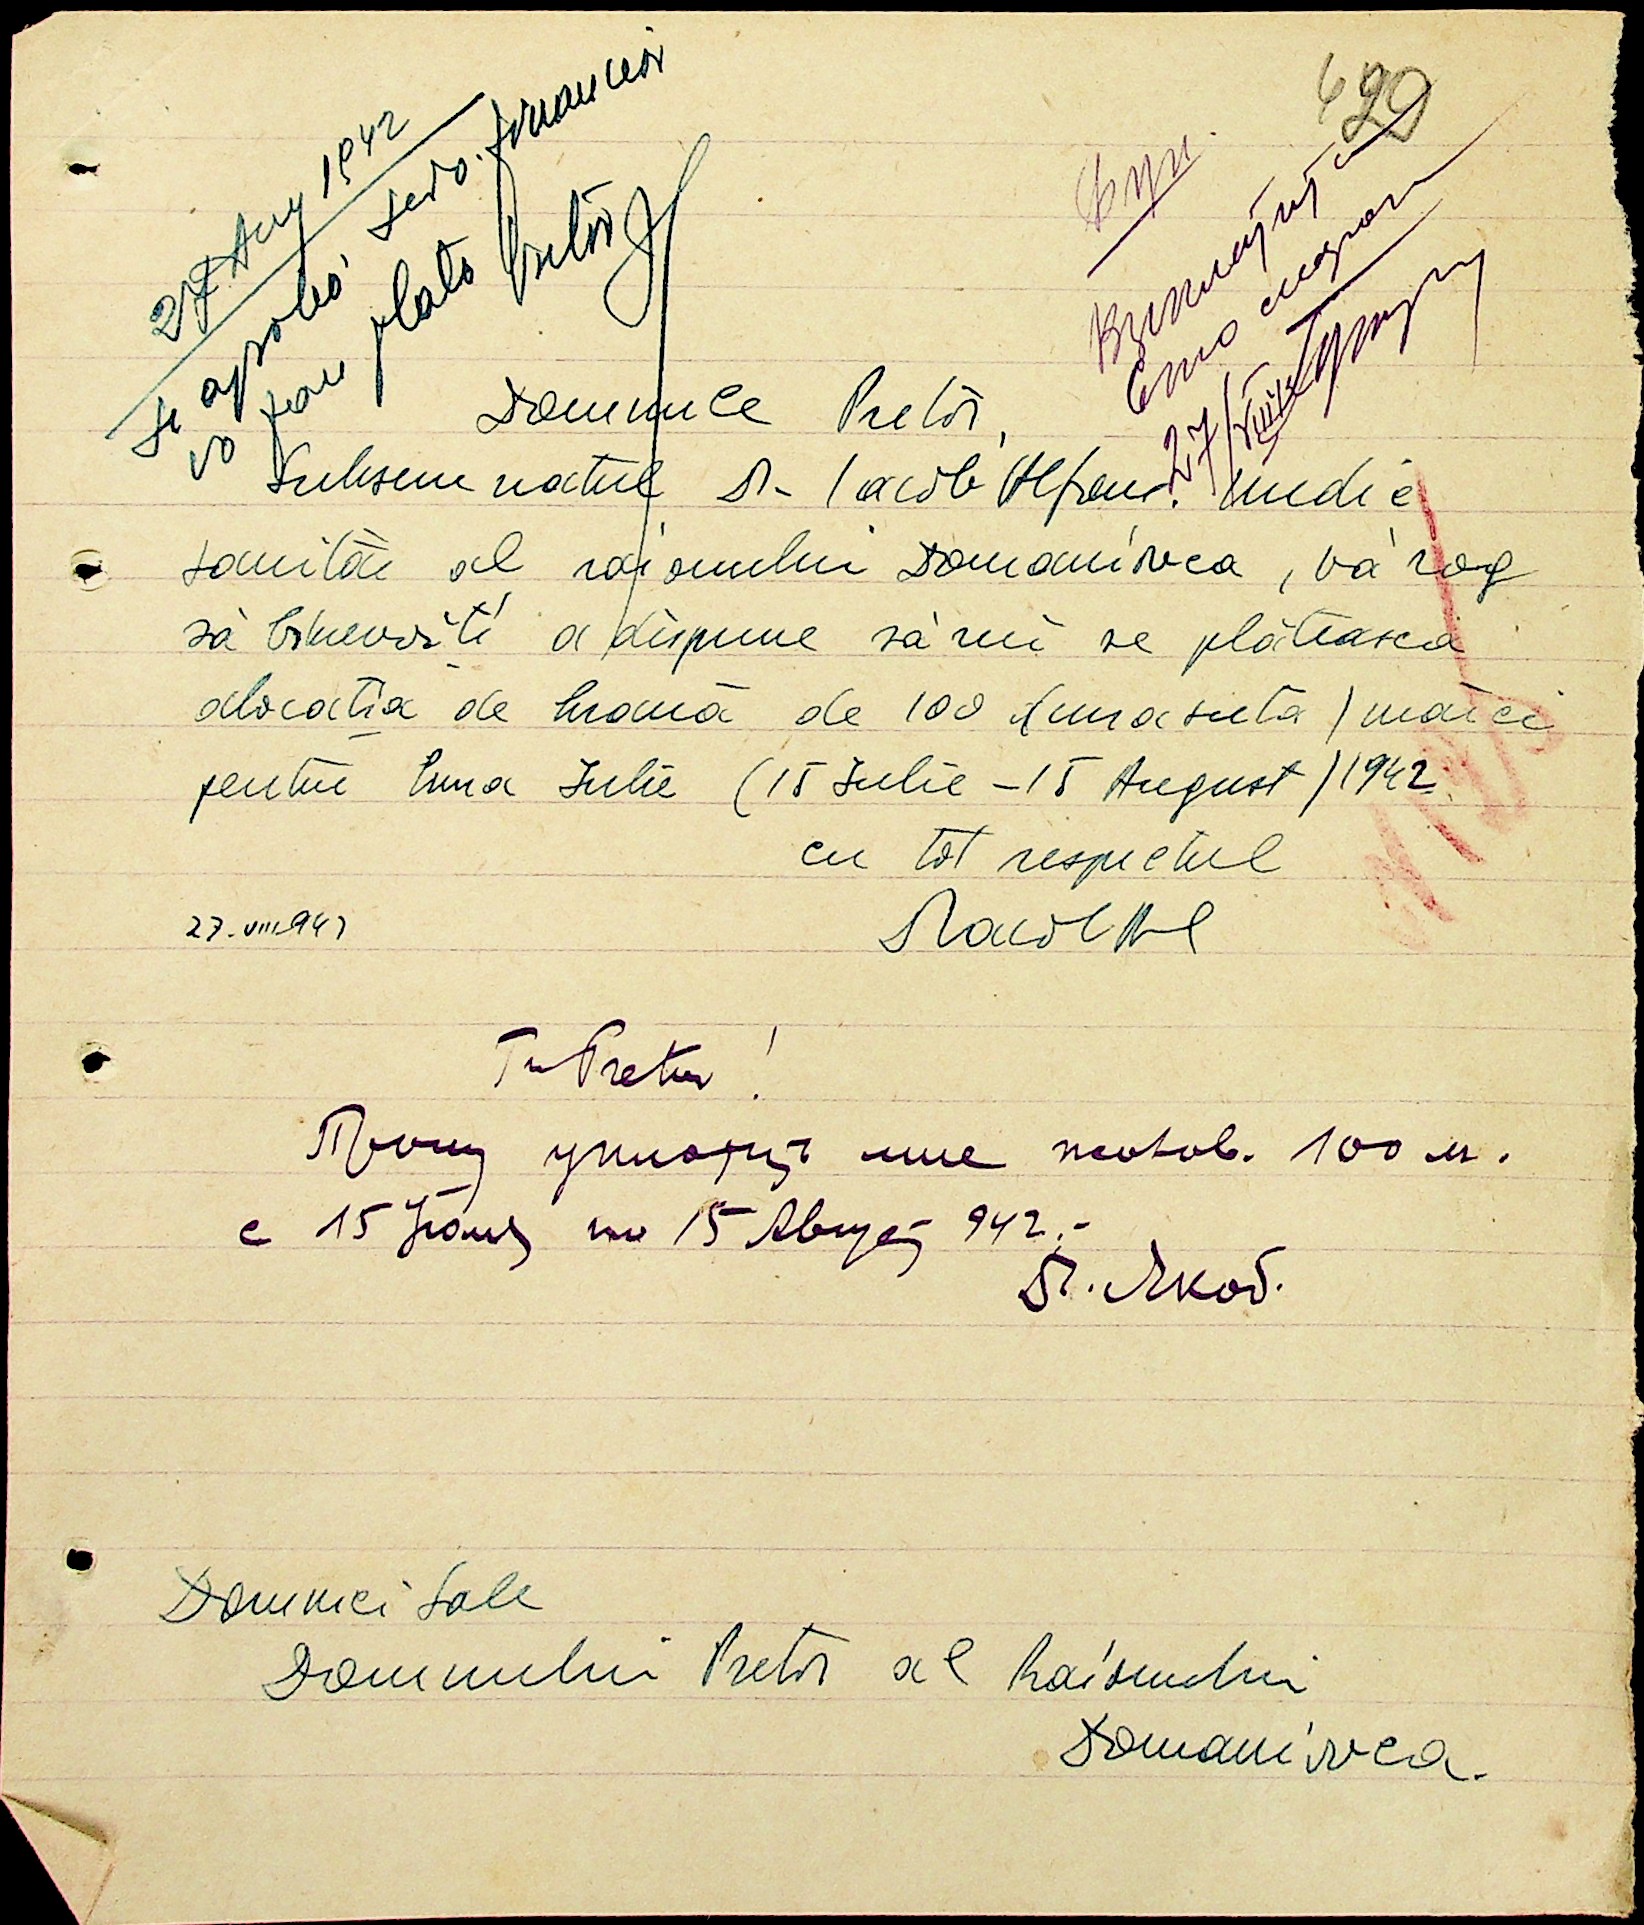 27 Aug 1942
Se aprobă Serv. financiar
va face plata
Pretor
429
Бух.
Выплатить
27/VIII
Domnule Pretor,
Subsemnatul Dr. Iacob Alfons. medic
sanitar al raionului Domaniovca, vă rog
să binevoiți a dispune să mi se plătească
alocația de hrană de 100 (una sută) mărci
pentru luna Iulie (15 Iulie – 15 August) 1942
cu tot respectul
27.VIII.942
Pretor!
Прошу уплотить мне жалов. 100 м.
с 15 Июля по 15 Август 942.-
Dr. Якоб.
Domniei Sale
Domnului Pretor al Raionului
Domaniovca.